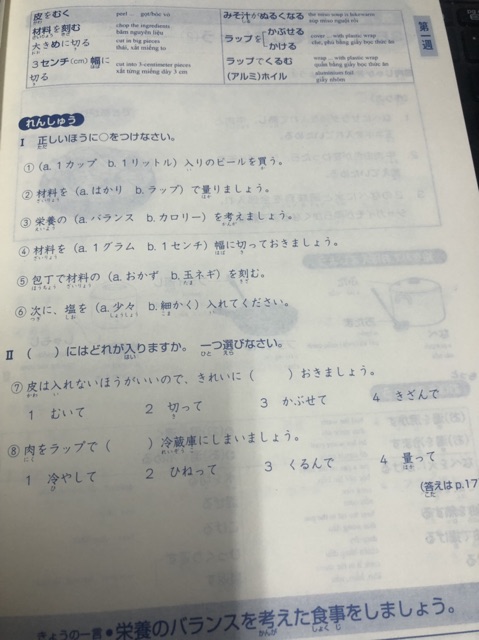 皮をむく peel ... gọt/bóc vỏ
材料を刻む chop the ingredients
băm nguyên liệu
大きめに切る cut in big pieces
thái, xắt miếng to
3センチ(cm)幅に切る cut into 3-centimeter pieces
xắt từng miếng dày 3 cm
みそ汁がぬるくなる the miso soup is lukewarm
súp miso nguội rồi
ラップを かぶせる
かける
cover ... with plastic wrap
che, phủ bằng giấy bọc thức ăn
ラップでくるむ wrap ... with plastic wrap
quấn bằng giấy bọc thức ăn
(アルミ)ホイル aluminium foil
giấy nhôm
第一週
れんしゅう
I 正しいほうに○をつけなさい。
①(a. 1カップ b. 1リットル)入りのビールを買う。
②材料を(a. はかり b. ラップ)で量りましょう。
③栄養の(a. バランス b. カロリー)を考えましょう。
④材料を(a. 1グラム b. 1センチ)幅に切っておきましょう。
⑤包丁で材料の(a. おかず b. 玉ネギ)を刻む。
⑥次に、塩を(a. 少々 b. 細かく)入れてください。
II ( )にはどれが入りますか。 一つ選びなさい。
⑦皮は入れないほうがいいので、きれいに( )おきましょう。
1 むいて 2 切って 3 かぶせて 4 きざんで
⑧肉をラップで( )冷蔵庫にしまいましょう。
1 冷やして 2 ひねって 3 くるんで 4 量って
(答えはp.17
きょうの一言●栄養のバランスを考えた食事をしましょう。